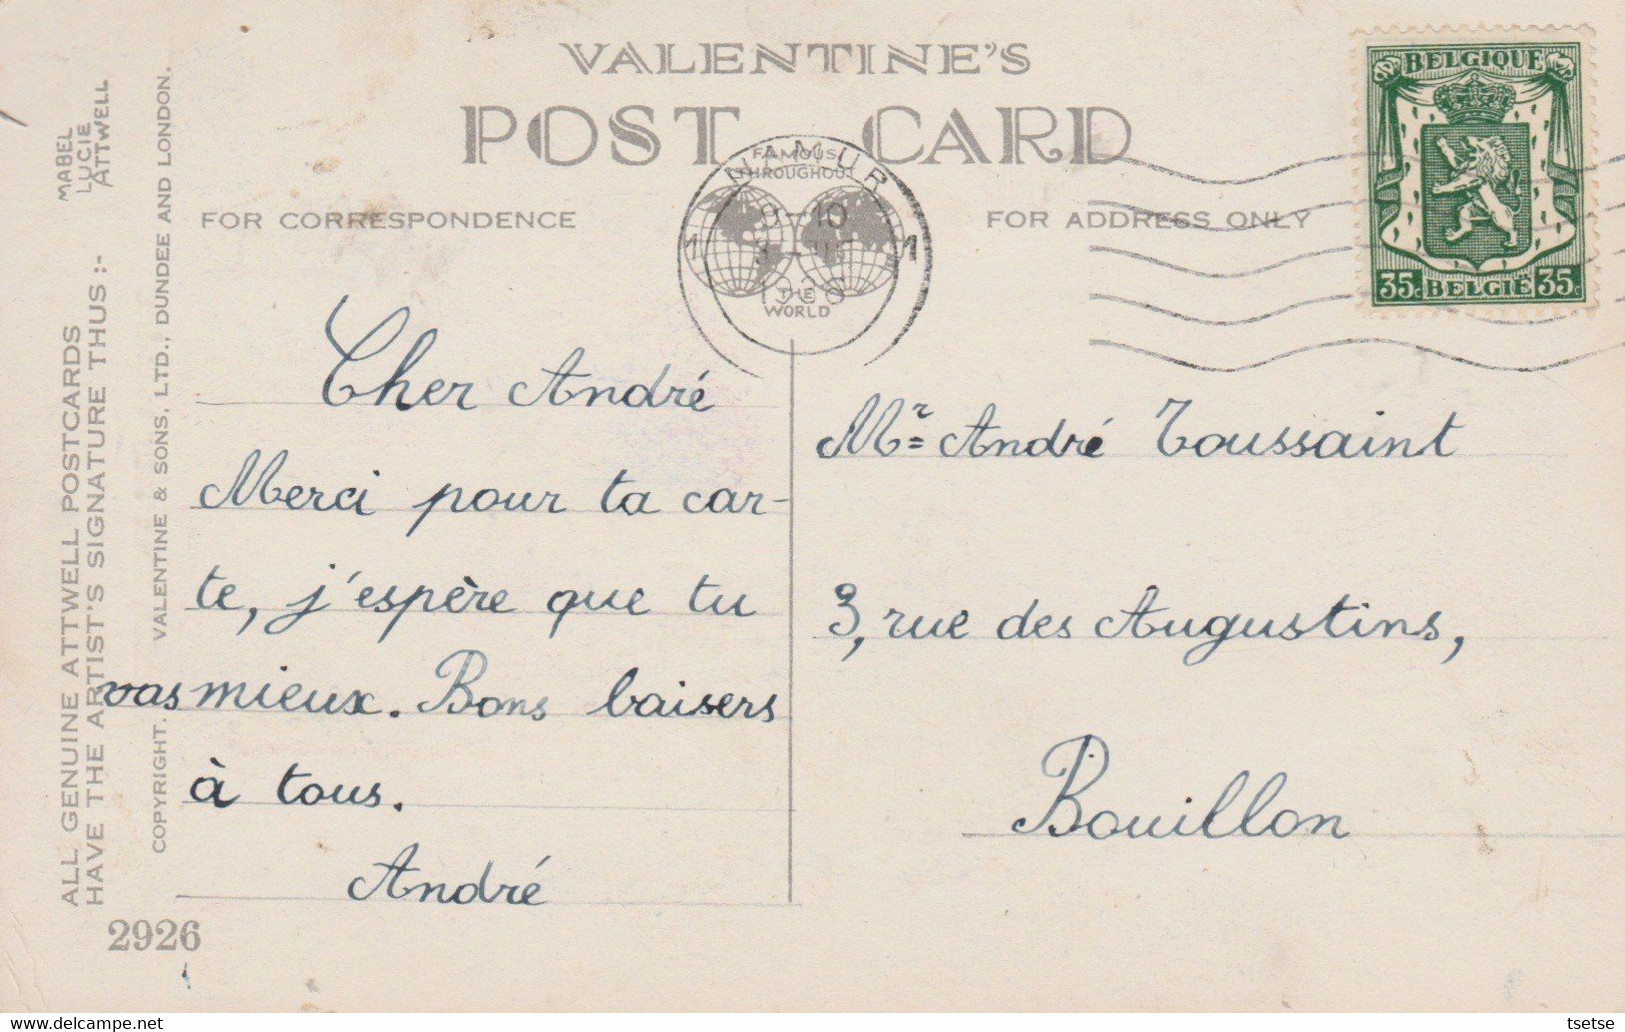 VALENTINE'S
POST CARD
FAMOUS
THROUGHOUT
THE
WORLD
FOR CORRESPONDENCE
FOR ADDRESS ONLY
NAMUR
1 1
9-10
BELGIQUE
35c BELGIË 35c
ALL GENUINE ATTWELL POSTCARDS
HAVE THE ARTIST'S SIGNATURE THUS :-
MABEL
LUCIE
ATTWELL
COPYRIGHT. VALENTINE & SONS, LTD., DUNDEE AND LONDON.
2926
Cher André
Merci pour ta car-
te, j'espère que tu
vas mieux. Bons baisers
à tous.
André
Mr André Toussaint
3, rue des Augustins,
Bouillon
tsetse